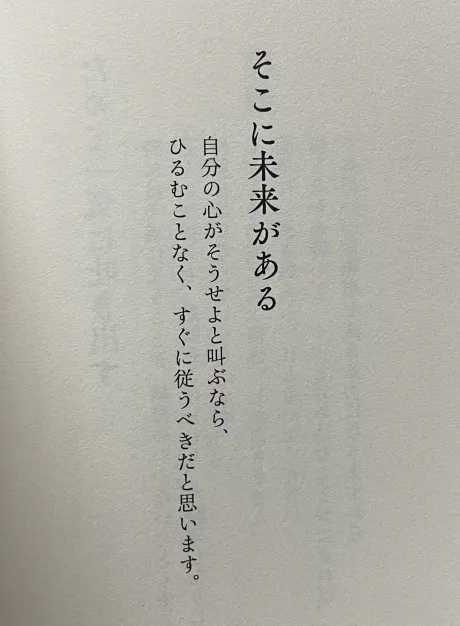 そこに未来がある
自分の心がそうせよと叫ぶなら、
ひるむことなく、すぐに従うべきだと思います。